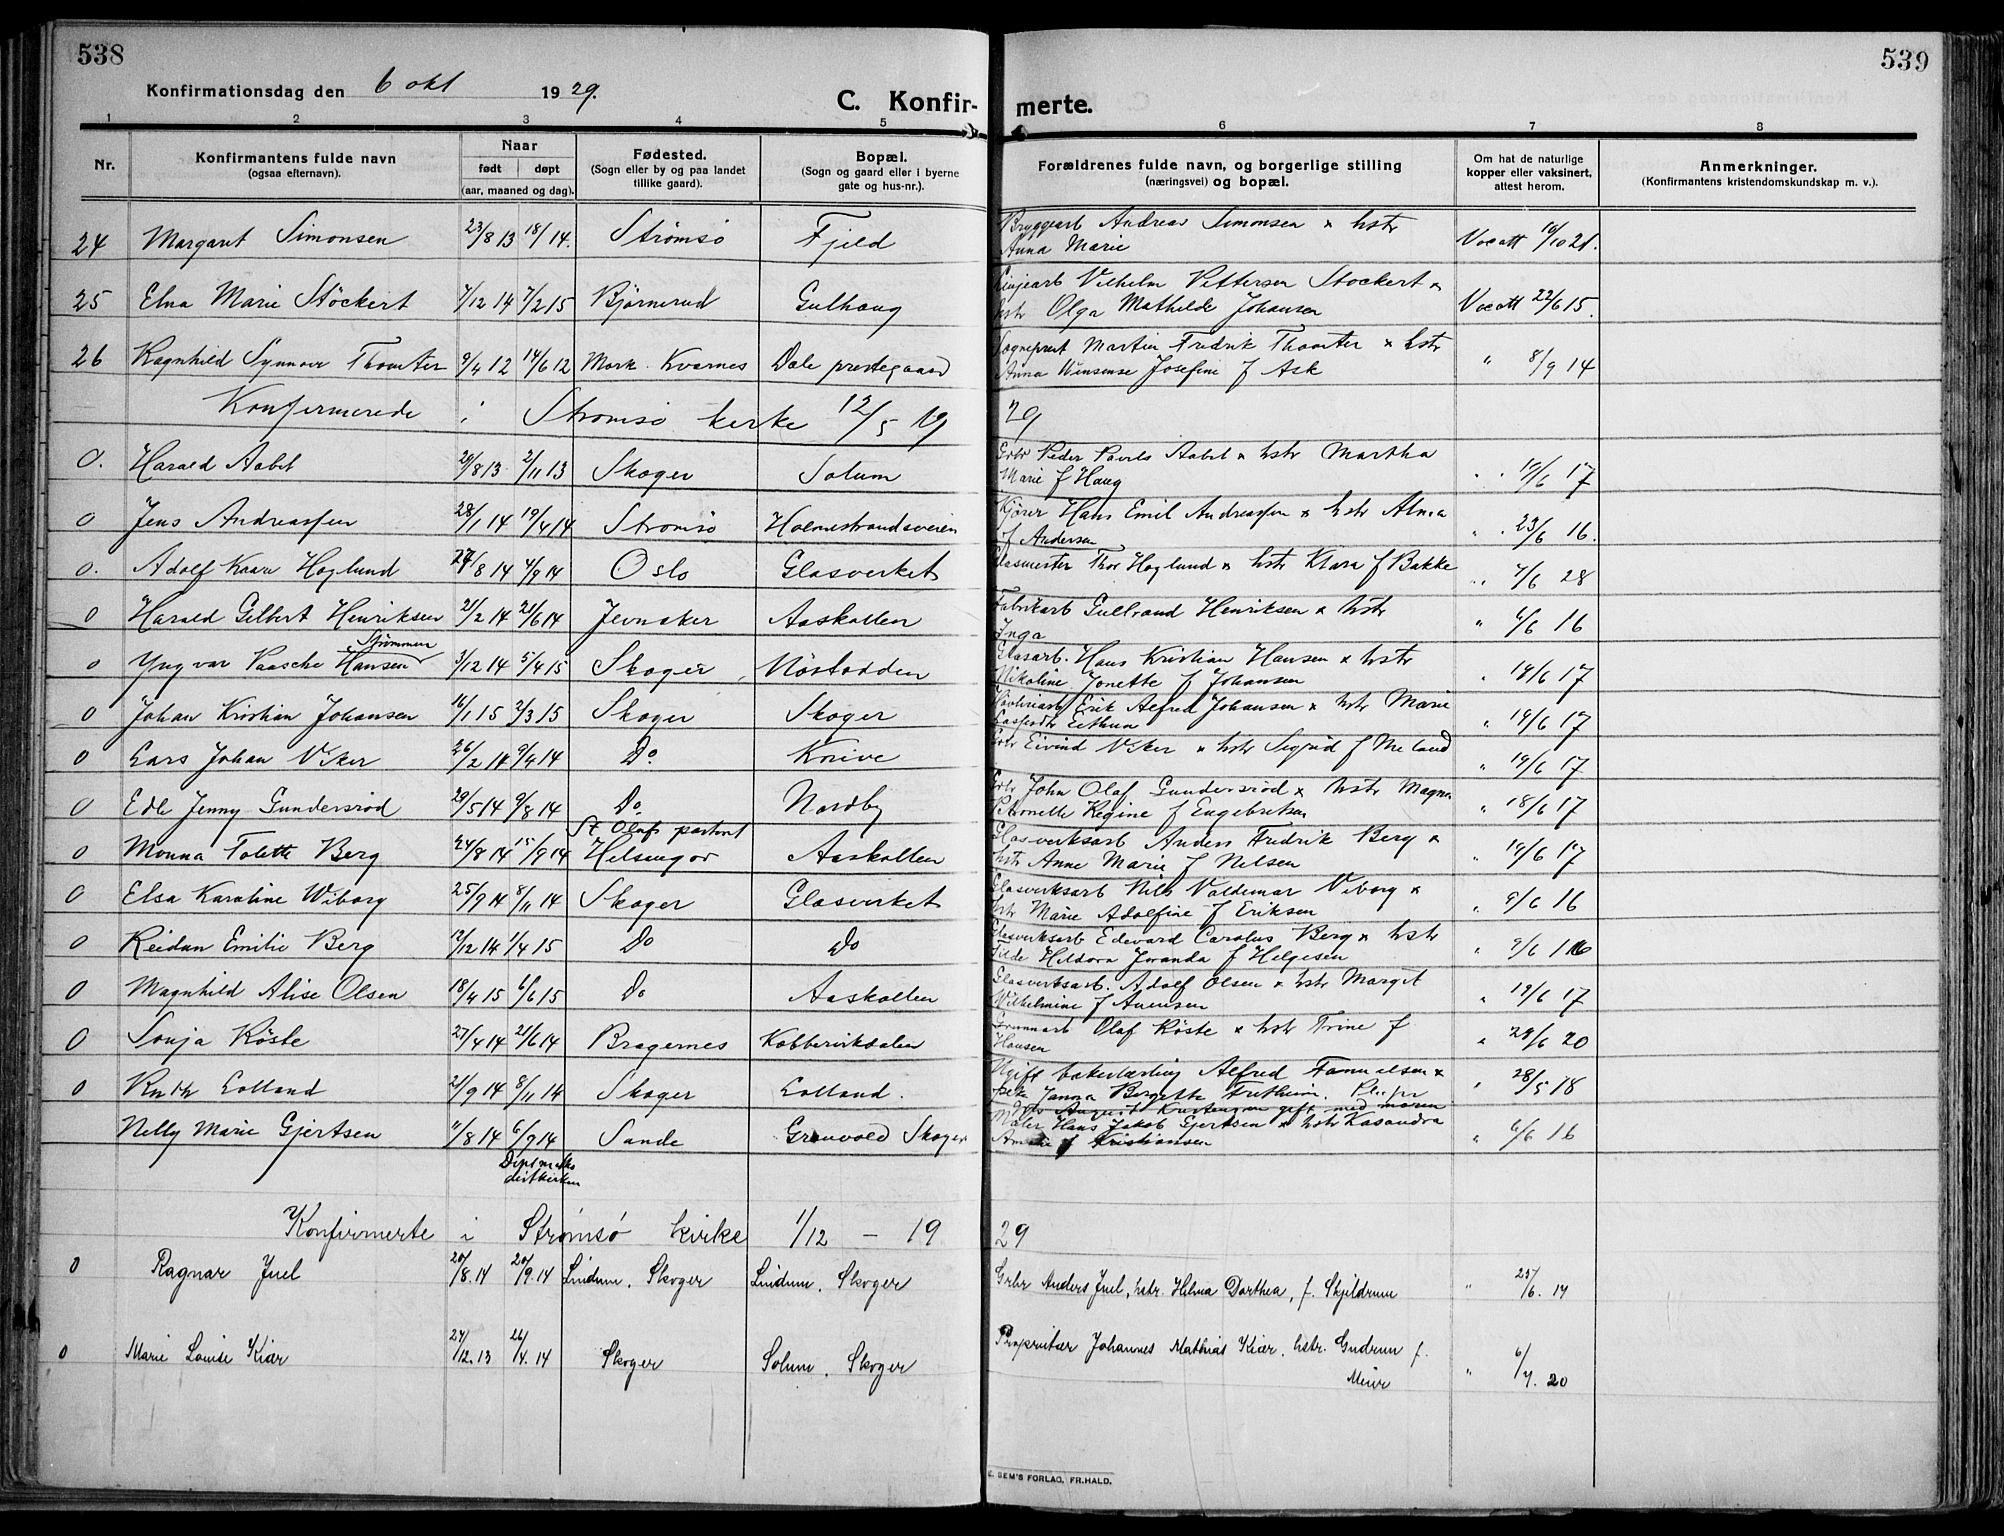 538
539
Konfirmationsdag den 6 okt 1929.
C. Konfir- merte.
1 2 3 4 5 6 7 8
Nr.
Konfirmantens fulde navn
(ogsaa efternavn).
Naar
født døpt
(aar, maaned og dag).
Fødested.
(Sogn eller by og paa landet
tillike gaard).
Bopæl.
(Sogn og gaard eller i byerne
gate og hus-nr.).
Forældrenes fulde navn, og borgerlige stilling
(næringsvei) og bopæl.
Om hat de naturlige
kopper eller vaksinert,
attest herom.
Anmerkninger.
(Konfirmantens kristendomskundskap m. v.).
24 Margaret Simonsen 23/8 13 18/1 14. Strømsø Fjeld Bryggearb Andreas Simonsen & hstr
Anna Marie Vacatt 10/10 21.
25 Elna Marie Stöckert 7/12 14 7/2 15 Bjørnerud Gulhaug Vilhelm Pettersen Stockert &
hstr Olga Mathilde Johansen Vacatt 22/6 15.
26 Ragnhild Synnøve Thomter 9/4 12 14/6 12 Mork. Kvarnes Dale prestegaard Sogneprest Martin Fredrik Thomter & hstr
Anna Josefine f Ask " 8/9 14
Konfirmerede i Strømsø kirke 12/5 19 29
0. Harald Aabel 29/8 13 2/11 13 Skoger Solum Grbr Peder Povels Aabel & hstr Martha
Marie f Haug " 19/6 17
0 Jens Andreassen 28/1 14 19/4 14 Strømsø Holmestrandsveien Kjører Hans Emil Andreassen & hstr Alma
f Andersen " 23/6 16.
0. Adolf Kaare Høglund 27/8 14 4/9 14 Oslo Glasverket Glasmester Thor Høglund & hstr Klara f Bakke " 7/6 28
0 Harald Gilbert Henriksen 21/2 14 21/6 14 Jevnaker Aaskollen Fabrikarb Gulbrand Henriksen & hstr
Inga " 6/6 16
Strømmen
0 Yngvar Paasche Hansen 3/12 14 5/4 15 Skoger Nøstodden Glasarb. Hans Kristian Hansen & hstr
Nikoline Jonette f Johansen " 19/6 17
0 Johan Kristian Johansen 16/1 15 2/3 15 Skoger Skoger Høvleriarb Erik Alfred Johansen & hstr Marie
" 19/6 17
0 Lars Johan Viker 26/2 14 9/4 14 Do Knive Grbr Eivind Viker & hstr Sigrid f Meland " 19/6 17
0 Edle Jenny Gundersrød 29/5 14 9/8 14 Do Nordby Grbr John Olaf Gundersrød & hstr Magna
Pernelle Regine f Engebretsen " 18/6 17
St. Olafs pastorat
0 Monna Tolette Berg 24/8 14 15/9 14 Helsingør Aaskollen Glasverksarb Anders Fredrik Berg &
hstr Anne Marie f Nilsen " 19/6 17
0 Elsa Karoline Wiborg 25/9 14 8/11 14 Skoger Glasverket Glasverksarb Nils Valdemar Viborg &
hstr Marie Adolfine f Eriksen " 9/6 16
0 Reidun Emilie Berg 12/12 14 1/4 15 Do Do Glasverksarb Edevard Carolus Berg & hstr
Tilde Heldora Joranda f Helgesen " 9/6 16
0 Magnhild Alise Olsen 18/4 15 6/6 15 Do Aaskollen Glasverksarb. Adolf Olsen & hstr Margit
Wilhelmine f Arensen " 19/6 17
0 Sonja Röste 27/4 14 21/6 14 Bragernes Kobbervikdalen Olaf Röste & hstr Trine f
Hansen " 29/6 20
0 Ruth Lolland 21/9 14 8/11 14 Skoger Lolland. Ugift bakerlærling Alfred &
pike Janna Borgette Fritheim. Pleiefar
Nils August Kristensen gift med moren " 28/5 18
Nelly Marie Gjertsen 11/8 14 6/9 14 Sande Grønvold Skoger Maler Hans Jakob Gjertsen & hstr Kasandra
Amalie f Kristiansen " 6/6 16
Dipt meth
distkirken
Konfirmerte i Strømsø kirke 1/12 - 19 29
0 Ragnar Juel 20/8. 14 20/9. 14 Lindum, Skoger Lindum, Skoger Grbr Anders Juel, hstr. Helma Dorthea, f. Skjeldrum " 25/6. 14
0 Marie Louise Kiær 27/12. 13 26/4. 14 Skoger Solum, Skoger Proprietær Johannes Mathias Kiær, hstr. Gudrun f.
Meier " 6/7. 20
E. SEM'S FORLAG, FR.HALD.